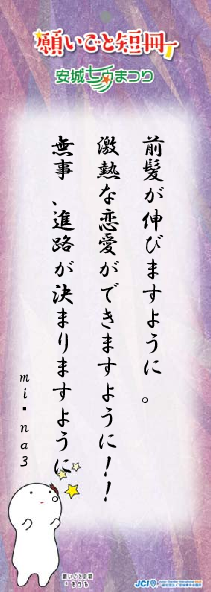 願いごと短冊
安城七夕まつり
前髪が伸びますように。
激熱な恋愛ができますように!!
無事、進路が決まりますように
na3
JCI